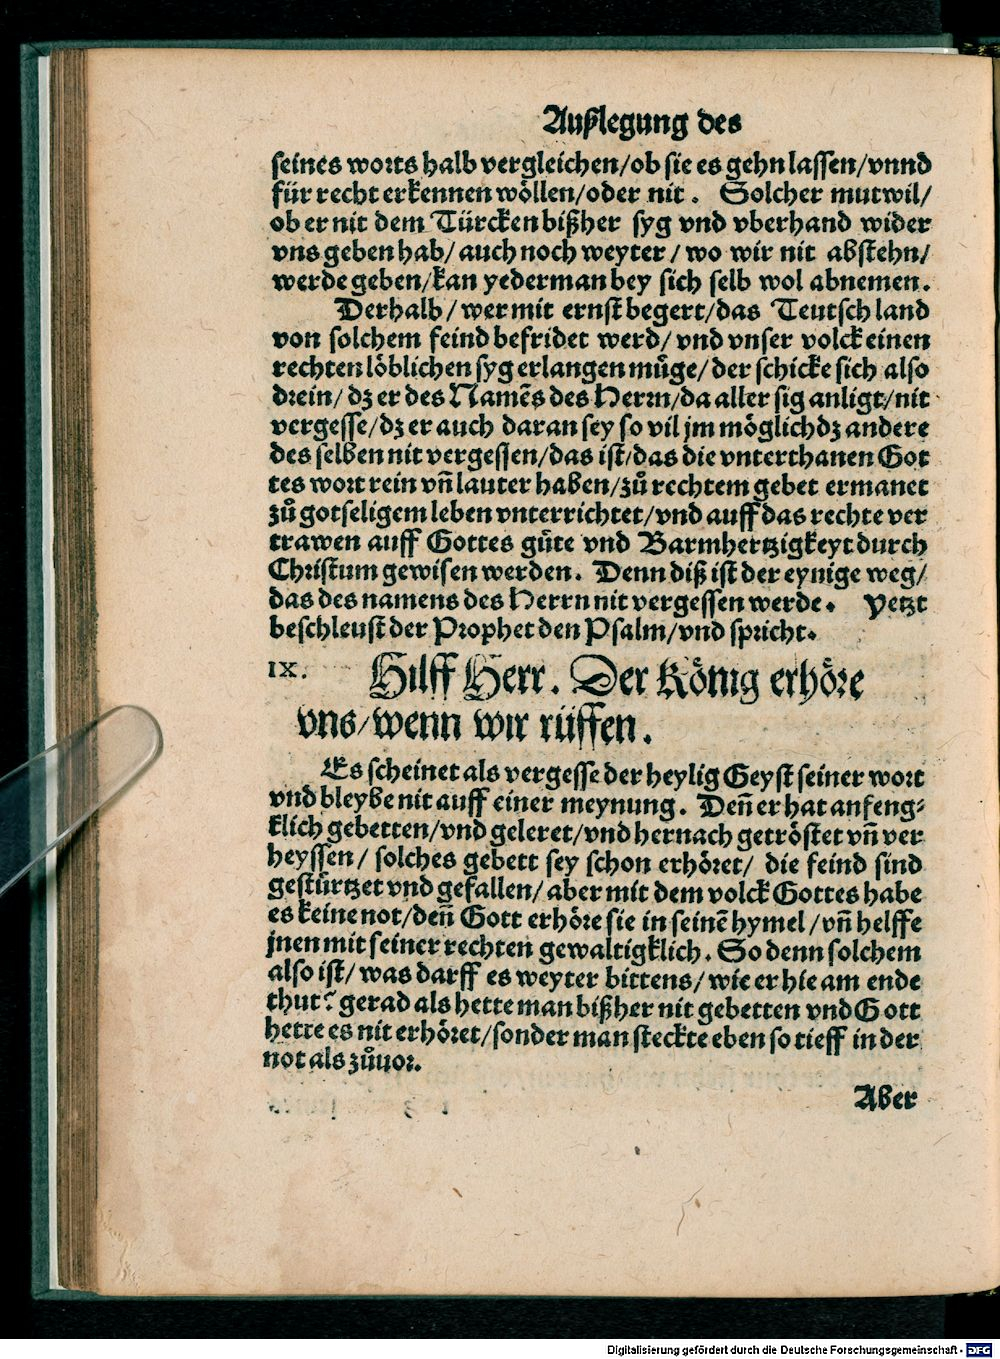 Außlegung des
seines worts halb vergleichen/ob sie es gehn lassen/vnnd
für recht erkennen wöllen/oder nit. Solcher mutwil/
ob er nit dem Türcken bißher syg vnd vberhand wider
vns geben hab/auch noch weyter/wo wir nit abstehn/
werde geben/kan yederman bey sich selb wol abnemen.
Derhalb/wer mit ernst begert/das Teutsch land
von solchem feind befridet werd/vnd vnser volck einen
rechten löblichen syg erlangen müge/der schicke sich also
drein/dz er des Namẽs des Herrn/da aller sig anligt/nit
vergesse/dz er auch daran sey so vil jm möglich dz andere
des selben nit vergessen/das ist/das die vnterthanen Got
tes wort rein vñ lauter haben/zů rechtem gebet ermanet
zů gotseligem leben vnterrichtet/vnd auff das rechte ver
trawen auff Gottes güte vnd Barmhertzigkeyt durch
Christum gewisen werden. Denn diß ist der eynige weg/
das des namens des Herrn nit vergessen werde. Yetzt
beschleust der Prophet den Psalm/vnd spricht.
IX. Hilff Herr. Der König erhöre
vns/wenn wir rüffen.
Es scheinet als vergesse der heylig Geyst seiner wort
vnd bleybe nit auff einer meynung. Deñ er hat anfeng⸗
klich gebetten/vnd geleret/vnd hernach getröstet vñ ver
heyssen/solches gebett sey schon erhöret/die feind sind
gestürtzet vnd gefallen/aber mit dem volck Gottes habe
es keine not/deñ Gott erhöre sie in seinẽ hymel/vñ helffe
jnen mit seiner rechten gewaltigklich. So denn solchem
also ist/was darff es weyter bittens/wie er hie am ende
thut? gerad als hette man bißher nit gebetten vnd Gott
hette es nit erhöret/sonder man steckte eben so tieff in der
not als zůuor.
Aber
Digitalisierung gefördert durch die Deutsche Forschungsgemeinschaft - DFG